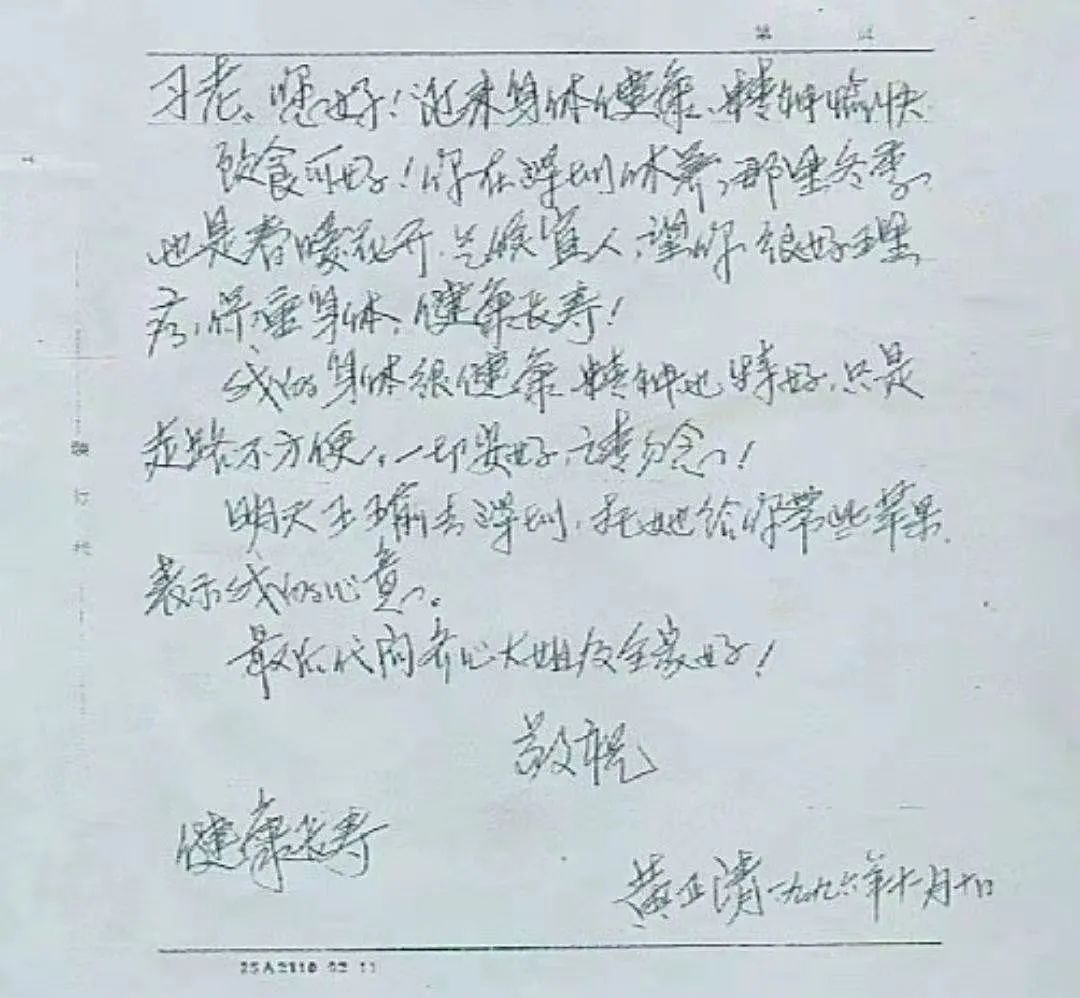 第 页
习老、您好！近来身体健康、精神愉快
饮食可好！你在深圳休养，那里冬季、
也是春暖花开、气候宜人，望你很好理
疗，保重身体，健康长寿！
我的身体很健康、精神也特好，只是
走路不方便，一切安好，请勿念！
明天王玉前去深圳，托她给你带些苹果、
表示我的心意。
最后代问齐心大姐及全家好！
敬祝
健康长寿
黄正清一九九六年十一月十日
装 订 线
25A2110 02 11